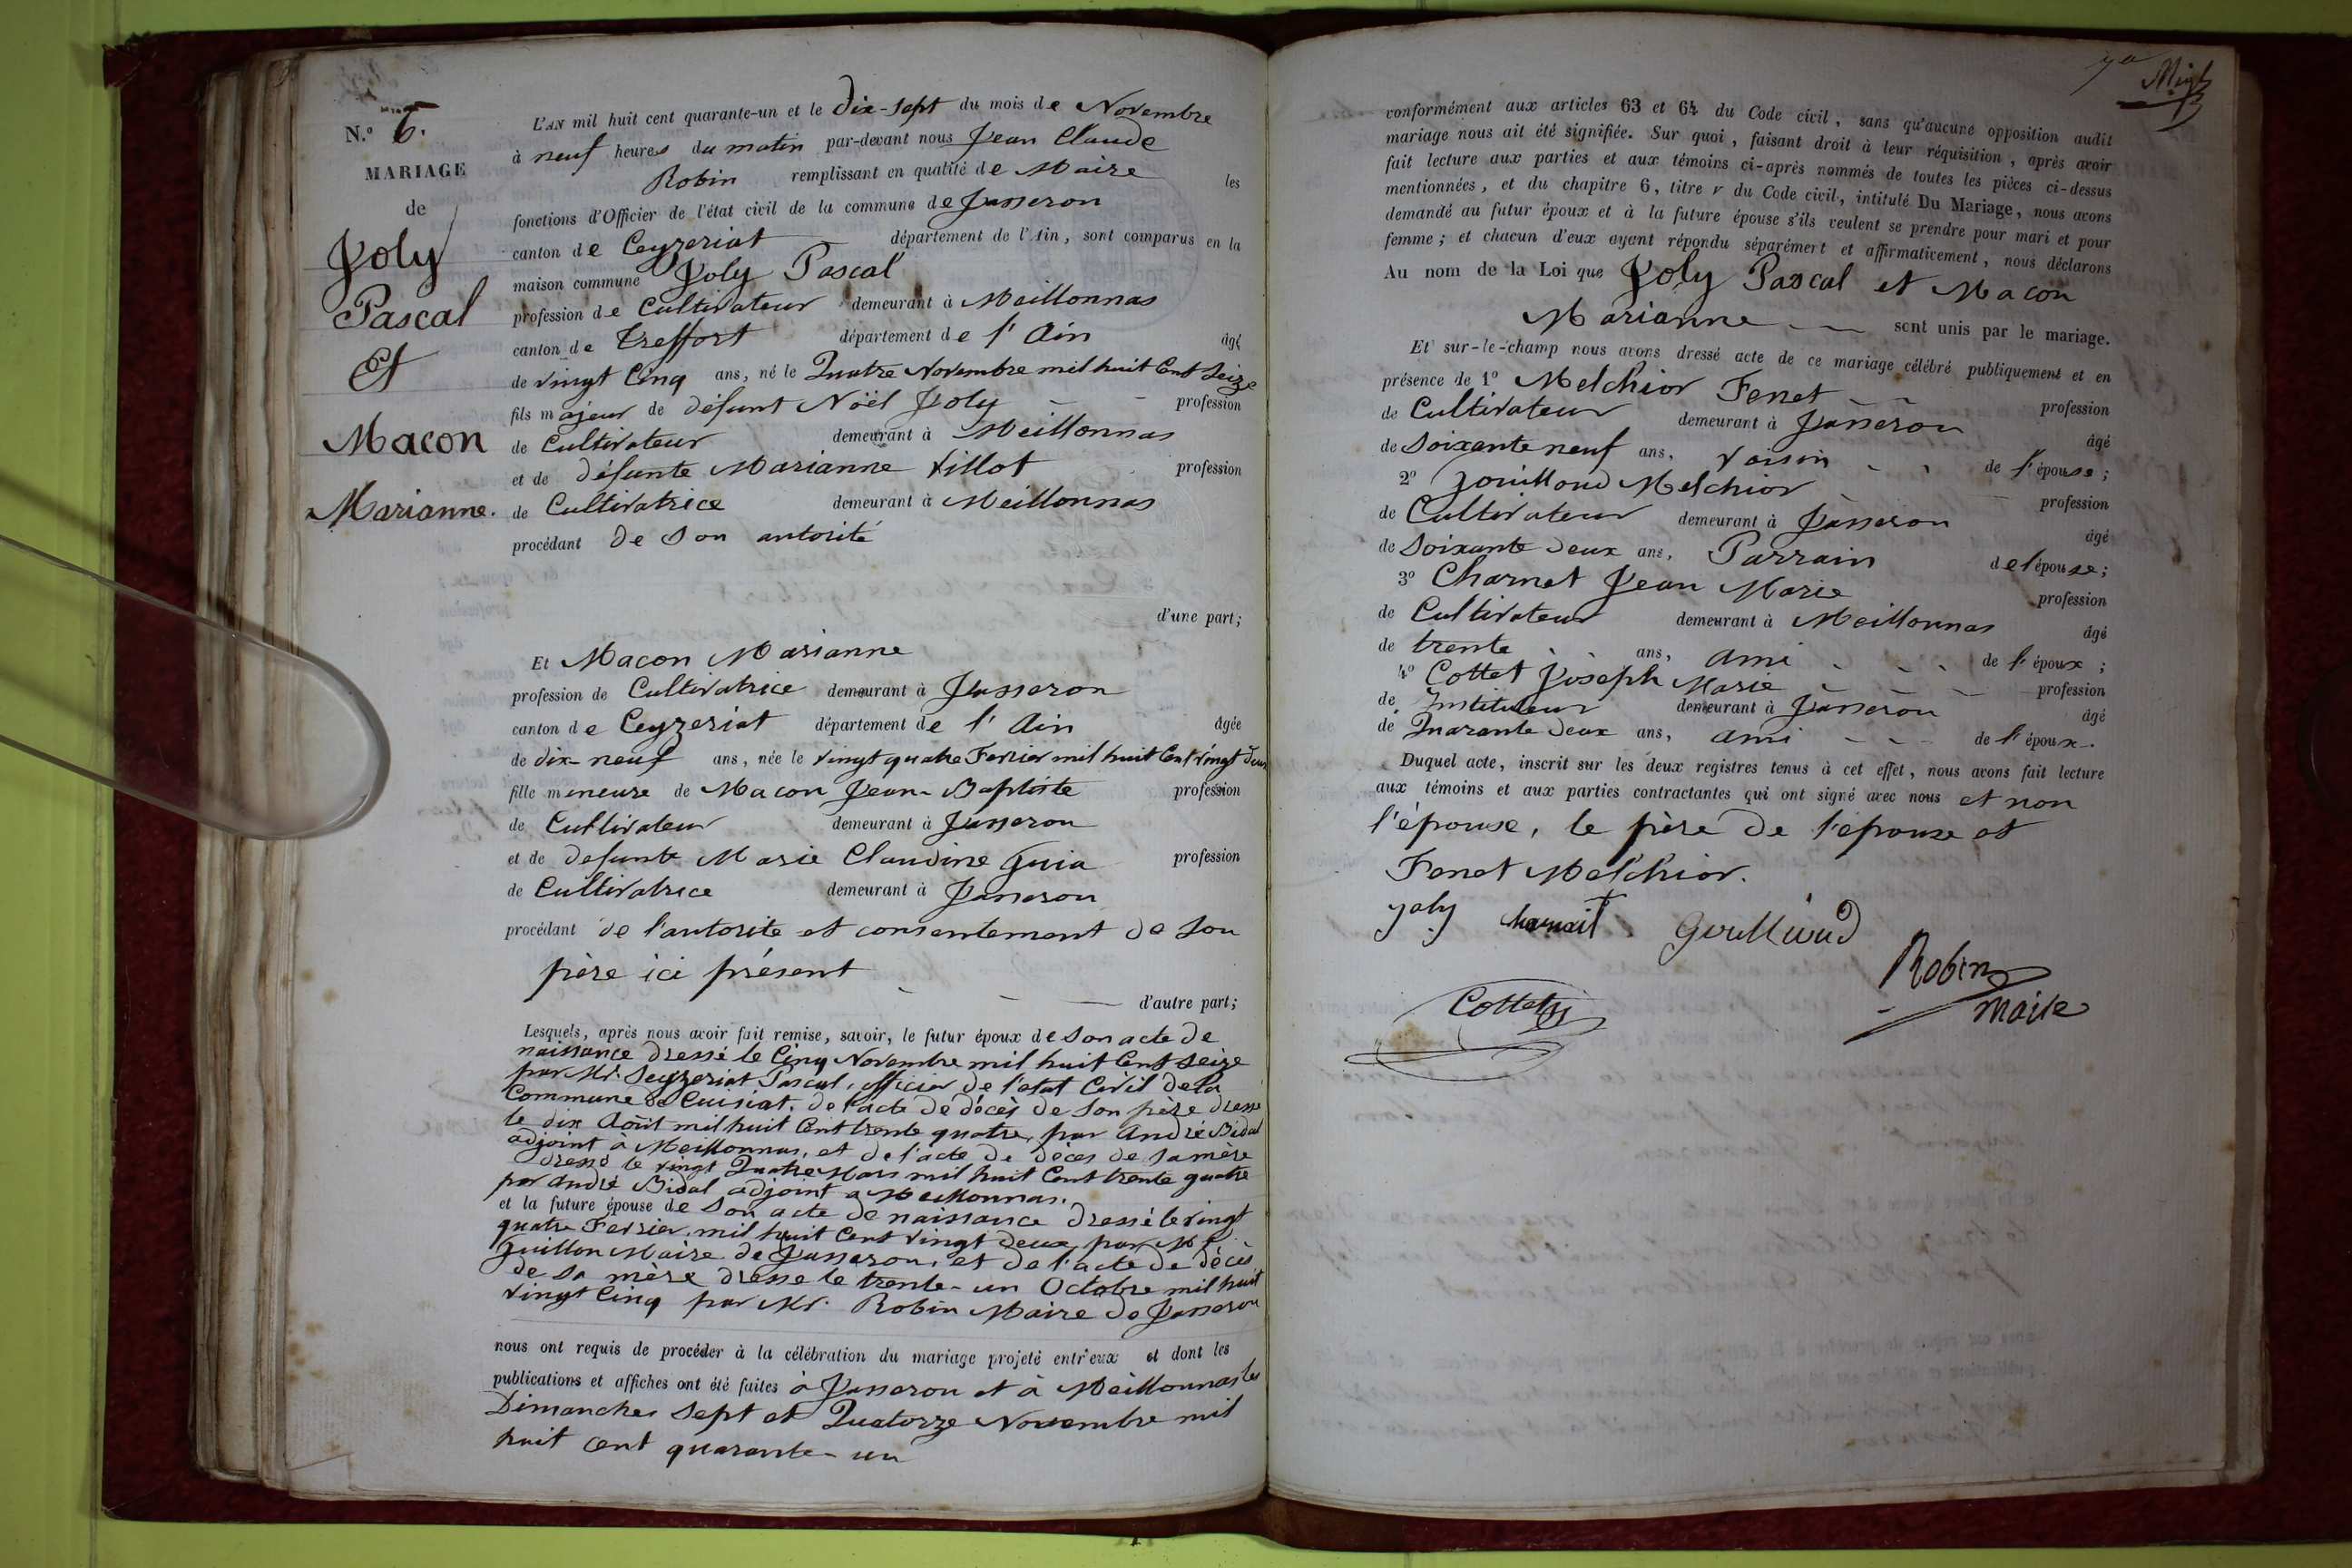 N.° 6.
MARIAGE
de
Joly
Pascal
Et
Macon
Marianne.
L'AN mil huit cent quarante-un et le Dix-Sept du mois de Novembre
à neuf heures du matin par-devant nous Jean Claude
Robin remplissant en qualité de Maire les
fonctions d'Officier de l'état civil de la commune de Jasseron
canton de Ceyzeriat département de l'Ain, sont comparus en la
maison commune Joly Pascal
profession de Cultivateur demeurant à Meillonnas
canton de Treffort département de l'Ain âgé
de vingt Cinq ans, né le Quatre Novembre mil huit Cent Seize
fils majeur de défunt Noël Joly profession
de Cultivateur demeurant à Meillonnas
et de défunte Marianne Villot profession
de Cultivatrice demeurant à Meillonnas
procédant de Son autorité
d'une part;
Et Macon Marianne
profession de Cultivatrice demeurant à Jasseron
canton de Ceyzeriat département de l'Ain âgée
de dix-neuf ans, née le vingt quatre Fevrier mil huit Cent vingt deux
fille mineure de Macon Jean-Baptiste profession
de Cultivateur demeurant à Jasseron
et de defunte Marie Claudine Guia profession
de Cultivatrice demeurant à Jasseron
procédant de l'autorite et consentement de Son
père ici présent
d'autre part;
Lesquels, après nous avoir fait remise, savoir, le futur époux de Son acte de
naissance dressé le Cinq Novembre mil huit Cent Seize
par Mr. Seyzeriat Pascal, officier de l'etat Civil de la
Commune de Cuisiat, de l'acte de décès de Son père dressé
le dix Août mil huit Cent trente quatre, par André Bidal
adjoint à Meillonnas, et de l'acte de décès de Sa mère
dressé le vingt Quatre Mars mil huit Cent trente quatre
par André Bidal adjoint a Meillonnas.
et la future épouse de Son acte de naissance dressé le vingt
quatre Fevrier mil huit Cent vingt deux, par Mr.
Guillon Maire de Jasseron, et de l'acte de décès
de Sa mère dresse le trente-un Octobre mil huit
vingt Cinq par Mr. Robin Maire de Jasseron
nous ont requis de procéder à la célébration du mariage projeté entr'eux et dont les
publications et affiches ont été faites à Jasseron et à Meillonnas les
Dimanches Sept et Quatorze Novembre mil
huit cent quarante-un
conformément aux articles 63 et 64 du Code civil, sans qu'aucune opposition audit
mariage nous ait été signifiée. Sur quoi, faisant droit à leur réquisition, après avoir
fait lecture aux parties et aux témoins ci-après nommés de toutes les pièces ci-dessus
mentionnées, et du chapitre 6, titre v du Code civil, intitulé Du Mariage, nous avons
demandé au futur époux et à la future épouse s'ils veulent se prendre pour mari et pour
femme; et chacun d'eux ayant répondu séparément et affirmativement, nous déclarons
Au nom de la Loi que Joly Pascal et Macon
Marianne sont unis par le mariage.
Et sur-le-champ nous avons dressé acte de ce mariage célébré publiquement et en
présence de 1° Melchior Fenet profession
de Cultivateur demeurant à Jasseron
de Soixante neuf ans, voisin âgé de l'épouse;
2° Gouilloud Melchior profession
de Cultivateur demeurant à Jasseron âgé
de Soixante deux ans, Parrain de l'épouse;
3° Charnet Jean Marie profession
de Cultivateur demeurant à Meillonnas âgé
de trente ans, ami de l'époux;
4° Cottet Joseph Marie profession
de Instituteur demeurant à Jasseron âgé
de Quarante deux ans, ami de l'époux.
Duquel acte, inscrit sur les deux registres tenus à cet effet, nous avons fait lecture
aux témoins et aux parties contractantes qui ont signé avec nous et non
l'épouse, le père de l'épouse et
Fenet Melchior.
joly Gouilloud
Robin
Cottet
Maire